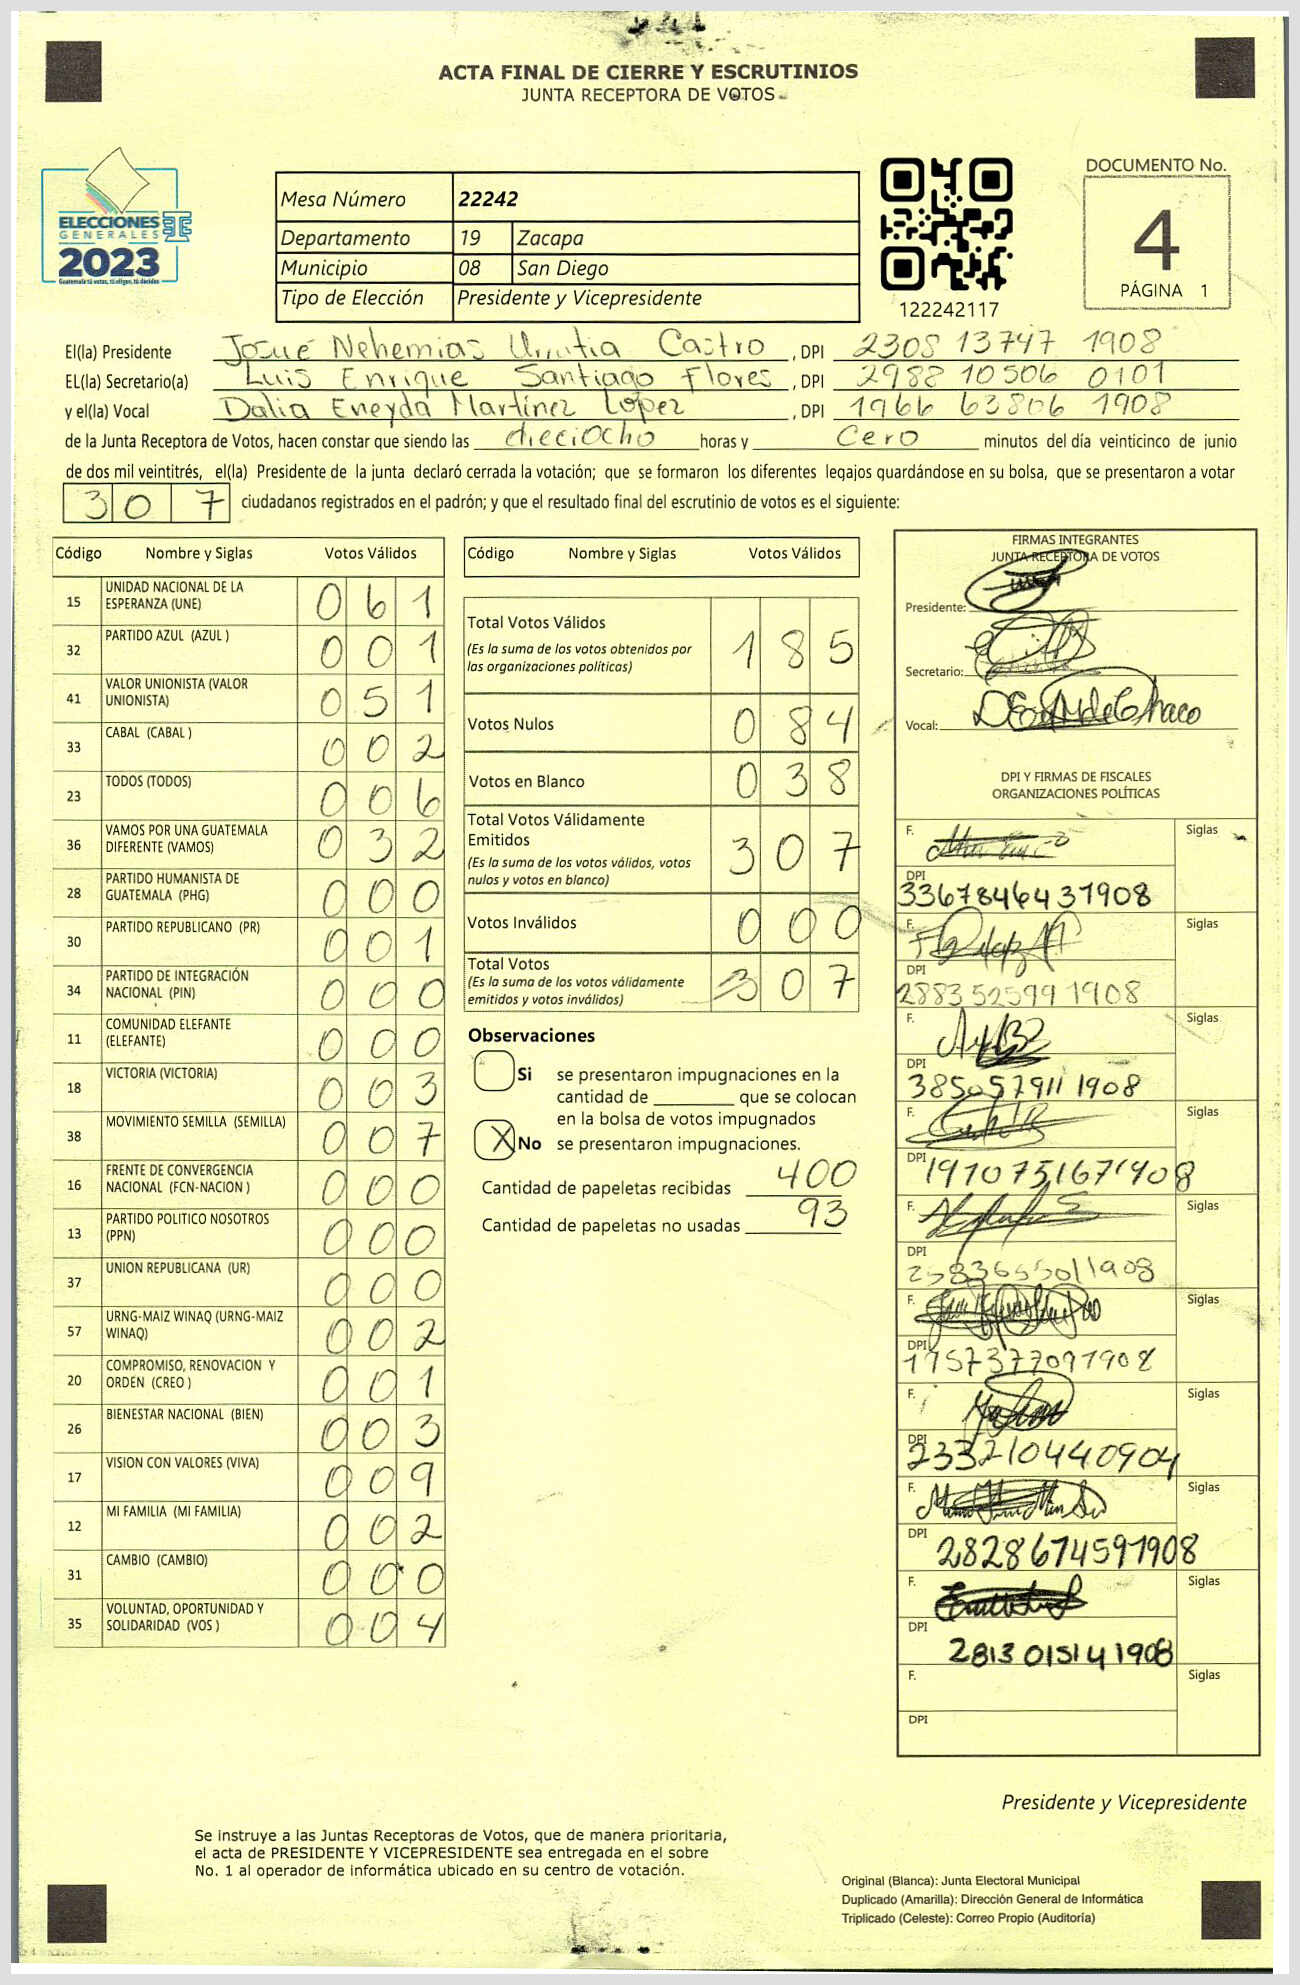 ACTA FINAL DE CIERRE Y ESCRUTINIOS
JUNTA RECEPTORA DE VOTOS
ELECCIONES
GENERALES
2023
Guatemala tú votas, tú eliges, tú decides
Mesa Número 22242
Departamento 19 Zacapa
Municipio 08 San Diego
Tipo de Elección Presidente y Vicepresidente
122242117
DOCUMENTO No.
4
PÁGINA 1
El(la) Presidente Josué Nehemias Urrutia Castro , DPI 2308 13747 1908
EL(la) Secretario(a) Luis Enrique Santiago Flores , DPI 2988 10506 0101
y el(la) Vocal Dalia Eneyda Martínez López , DPI 1966 63806 1908
de la Junta Receptora de Votos, hacen constar que siendo las dieciocho horas y cero minutos del día veinticinco de junio
de dos mil veintitrés, el(la) Presidente de la junta declaró cerrada la votación; que se formaron los diferentes legajos quardándose en su bolsa, que se presentaron a votar
307 ciudadanos registrados en el padrón; y que el resultado final del escrutinio de votos es el siguiente:
Código Nombre y Siglas Votos Válidos
15 UNIDAD NACIONAL DE LA ESPERANZA (UNE) 061
32 PARTIDO AZUL (AZUL ) 001
41 VALOR UNIONISTA (VALOR UNIONISTA) 051
33 CABAL (CABAL ) 002
23 TODOS (TODOS) 006
36 VAMOS POR UNA GUATEMALA DIFERENTE (VAMOS) 032
28 PARTIDO HUMANISTA DE GUATEMALA (PHG) 000
30 PARTIDO REPUBLICANO (PR) 001
34 PARTIDO DE INTEGRACIÓN NACIONAL (PIN) 000
11 COMUNIDAD ELEFANTE (ELEFANTE) 000
18 VICTORIA (VICTORIA) 003
38 MOVIMIENTO SEMILLA (SEMILLA) 007
16 FRENTE DE CONVERGENCIA NACIONAL (FCN-NACION ) 000
13 PARTIDO POLITICO NOSOTROS (PPN) 000
37 UNION REPUBLICANA (UR) 000
57 URNG-MAIZ WINAQ (URNG-MAIZ WINAQ) 002
20 COMPROMISO, RENOVACION Y ORDEN (CREO ) 001
26 BIENESTAR NACIONAL (BIEN) 003
17 VISION CON VALORES (VIVA) 009
12 MI FAMILIA (MI FAMILIA) 002
31 CAMBIO (CAMBIO) 000
35 VOLUNTAD, OPORTUNIDAD Y SOLIDARIDAD (VOS ) 004
Código Nombre y Siglas Votos Válidos
Total Votos Válidos 185
(Es la suma de los votos obtenidos por
las organizaciones políticas)
Votos Nulos 084
Votos en Blanco 038
Total Votos Válidamente
Emitidos 307
(Es la suma de los votos válidos, votos
nulos y votos en blanco)
Votos Inválidos 000
Total Votos 307
(Es la suma de los votos válidamente
emitidos y votos inválidos)
Observaciones
Si se presentaron impugnaciones en la
cantidad de ________ que se colocan
en la bolsa de votos impugnados
X No se presentaron impugnaciones.
Cantidad de papeletas recibidas 400
Cantidad de papeletas no usadas 93
FIRMAS INTEGRANTES
JUNTA RECEPTORA DE VOTOS
Presidente:
Secretario:
Vocal:
DPI Y FIRMAS DE FISCALES
ORGANIZACIONES POLÍTICAS
F. Siglas
DPI 3367846431908
F. Siglas
DPI 2883525991908
F. Siglas
DPI 3850579111908
F. Siglas
DPI 1910751671908
F. Siglas
DPI
F. Siglas
DPI 1957377091908
F. Siglas
DPI 2332104400904
F. Siglas
DPI 2828674591908
F. Siglas
DPI 2813015141908
F. Siglas
DPI
Presidente y Vicepresidente
Se instruye a las Juntas Receptoras de Votos, que de manera prioritaria,
el acta de PRESIDENTE Y VICEPRESIDENTE sea entregada en el sobre
No. 1 al operador de informática ubicado en su centro de votación.
Original (Blanca): Junta Electoral Municipal
Duplicado (Amarilla): Dirección General de Informática
Triplicado (Celeste): Correo Propio (Auditoría)